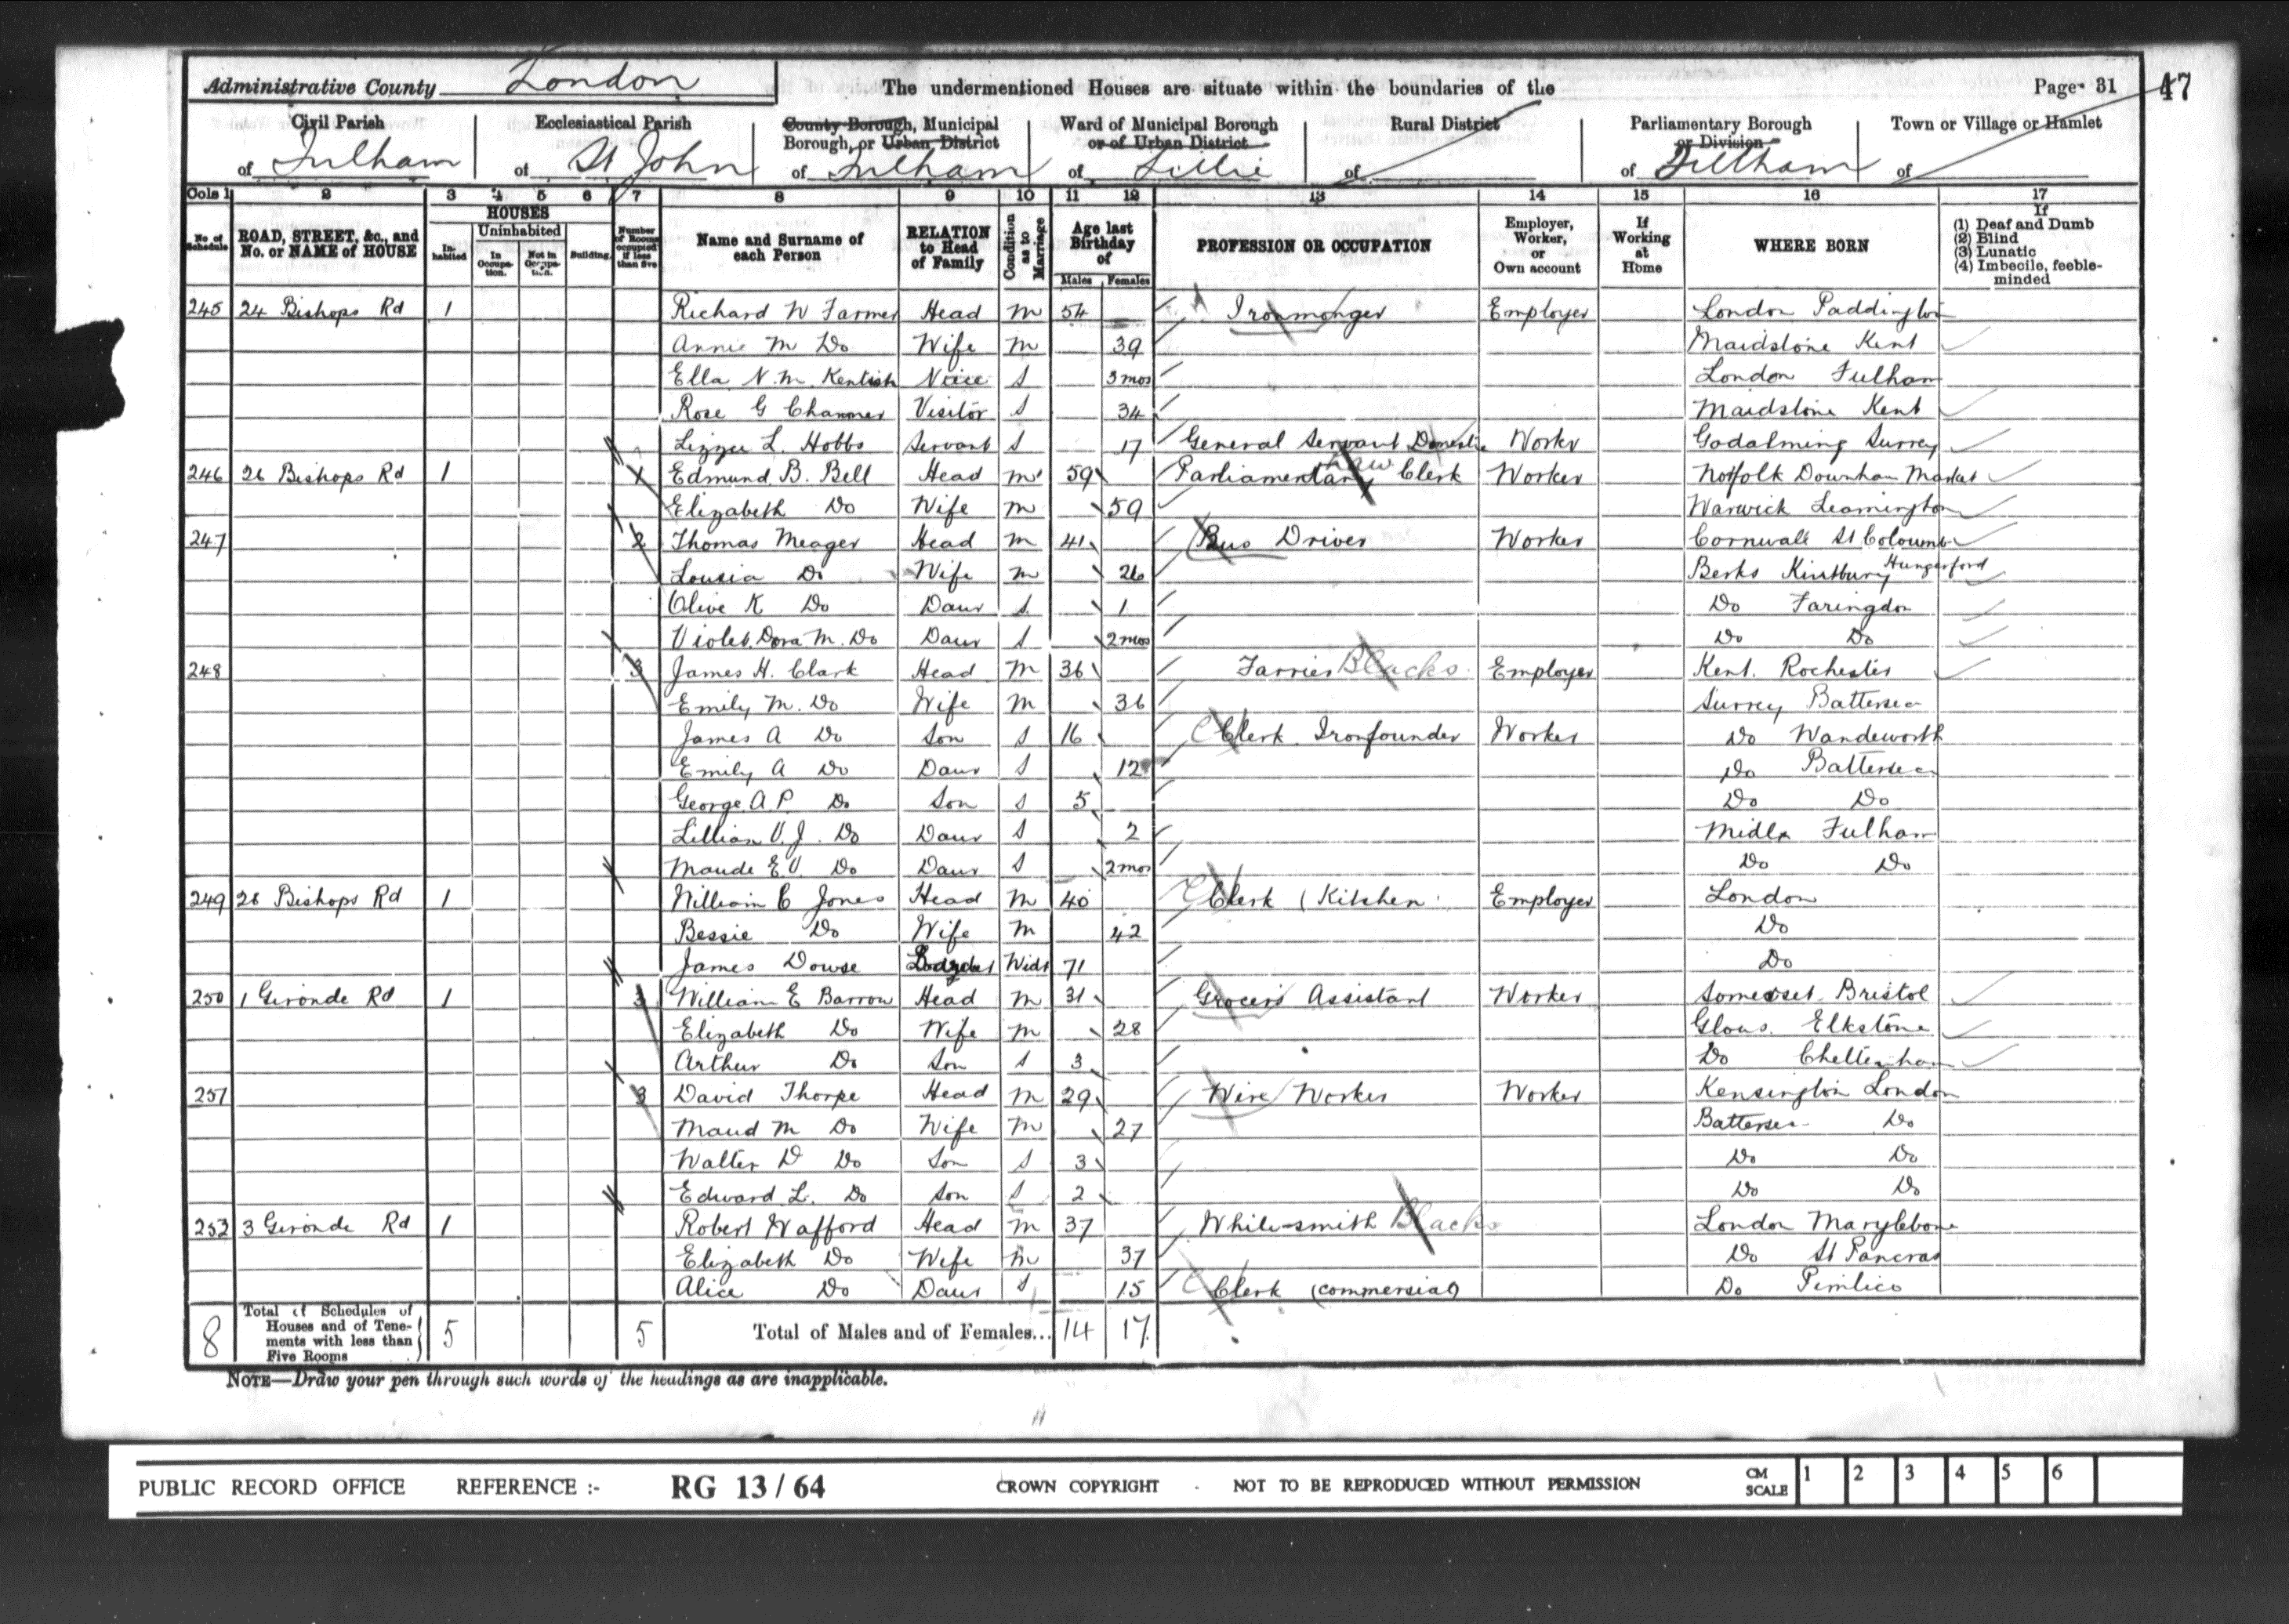 Administrative County London The undermentioned Houses are situate within the boundaries of the Page 31 47
Civil Parish Ecclesiastical Parish County Borough, Municipal Borough, or Urban District Ward of Municipal Borough or of Urban District Rural District Parliamentary Borough or Division Town or Village or Hamlet
of Fulham of St John of Fulham of Lillie of of Fulham of
Cols 1 2 3 4 5 6 7 8 9 10 11 12 13 14 15 16 17
No of Schedule ROAD, STREET, &c., and No. or NAME of HOUSE HOUSES Inhabited Uninhabited In Occupation. Not in Occupation. Building. Number of Rooms occupied if less than five Name and Surname of each Person RELATION to Head of Family Condition as to Marriage Age last Birthday of Males Females PROFESSION OR OCCUPATION Employer, Worker, or Own account If Working at Home WHERE BORN If (1) Deaf and Dumb (2) Blind (3) Lunatic (4) Imbecile, feeble-minded
245 24 Bishops Rd 1 Richard W Farmer Head M 54 Ironmonger Employer London Paddington
Annie M Do Wife M 39 Maidstone Kent
Ella N. M. Kentish Neice S 3 mos London Fulham
Rose G Charmer Visitor S 34 Maidstone Kent
Lizzie L. Hobbs Servant S 17 General Servant Domestic Worker Godalming Surrey
246 26 Bishops Rd 1 1 Edmund B. Bell Head M 59 Parliamentary Law Clerk Worker Norfolk Downham Market
Elizabeth Do Wife M 59 Warwick Leamington
247 2 Thomas Meager Head M 41 Bus Driver Worker Cornwall St Columb
Lousia Do Wife M 26 Berks Kintbury Hungerford
Olive K Do Daur S 1 Do Faringdon
Violet Dora M. Do Daur S 2 mos Do Do
248 3 James H. Clark Head M 36 Farrier Blacks Employer Kent. Rochester
Emily M. Do Wife M 36 Surrey Battersea
James A Do Son S 16 C Clerk Ironfounder Worker Do Wandsworth
Emily A Do Daur S 12 Do Battersea
George A. P. Do Son S 5 Do Do
Lillian V. J. Do Daur S 2 Midlx Fulham
Maude E. V. Do Daur S 2 mos Do Do
249 28 Bishops Rd 1 William C Jones Head M 40 C Clerk (Kitchen Employer London
Bessie Do Wife M 42 Do
James Dowse Widr 71 Do
250 1 Gironde Rd 1 3 William E Barrow Head M 31 Grocers Assistant Worker Somerset Bristol
Elizabeth Do Wife M 28 Glous. Elkstone
Arthur Do Son S 3 Do Cheltenham
251 3 David Thorpe Head M 29 Wire Worker Worker Kensington London
Maud M Do Wife M 27 Battersea Do
Walter D Do Son S 3 Do Do
Edward L. Do Son S 2 Do Do
252 3 Gironde Rd 1 Robert Wafford Head M 37 White-smith Blacks London Marylebone
Elizabeth Do Wife M 37 Do St Pancras
Alice Do Daur S 15 C Clerk (commercial) Do Pimlico
8 Total of Schedules of Houses and of Tenements with less than Five Rooms 5 5 Total of Males and of Females... 14 17
NOTE—Draw your pen through such words of the headings as are inapplicable.
PUBLIC RECORD OFFICE REFERENCE :- RG 13/64 CROWN COPYRIGHT - NOT TO BE REPRODUCED WITHOUT PERMISSION CM SCALE 1 2 3 4 5 6